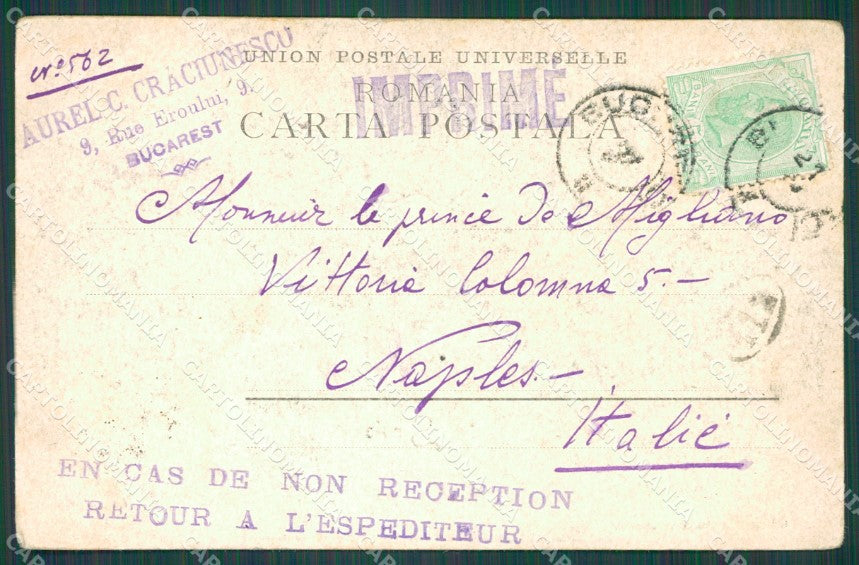 No 562
AUREL C. CRACIUNESCU
9, Rue Eroului, 9.
BUCAREST
UNION POSTALE UNIVERSELLE
ROMANIA
IMPRIMÉ
CARTA POSTALA
BUC
Monsieur le prince de Migliano
Vittoria Colomna 5.-
Naples-
Italié
EN CAS DE NON RECEPTION
RETOUR A L'ESPEDITEUR
CARTOLINOMANIA